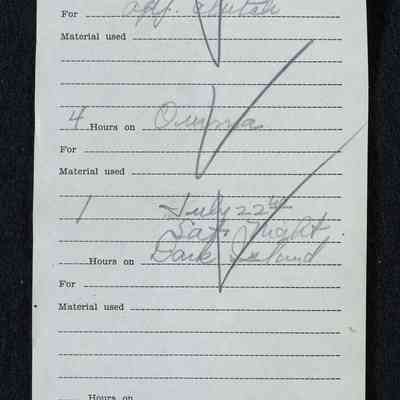 For adj. clutch
Material used
4 Hours on
For
Material used
1 July 22nd
Sat. Night
Hours on Dark Island
For
Material used
Hours on